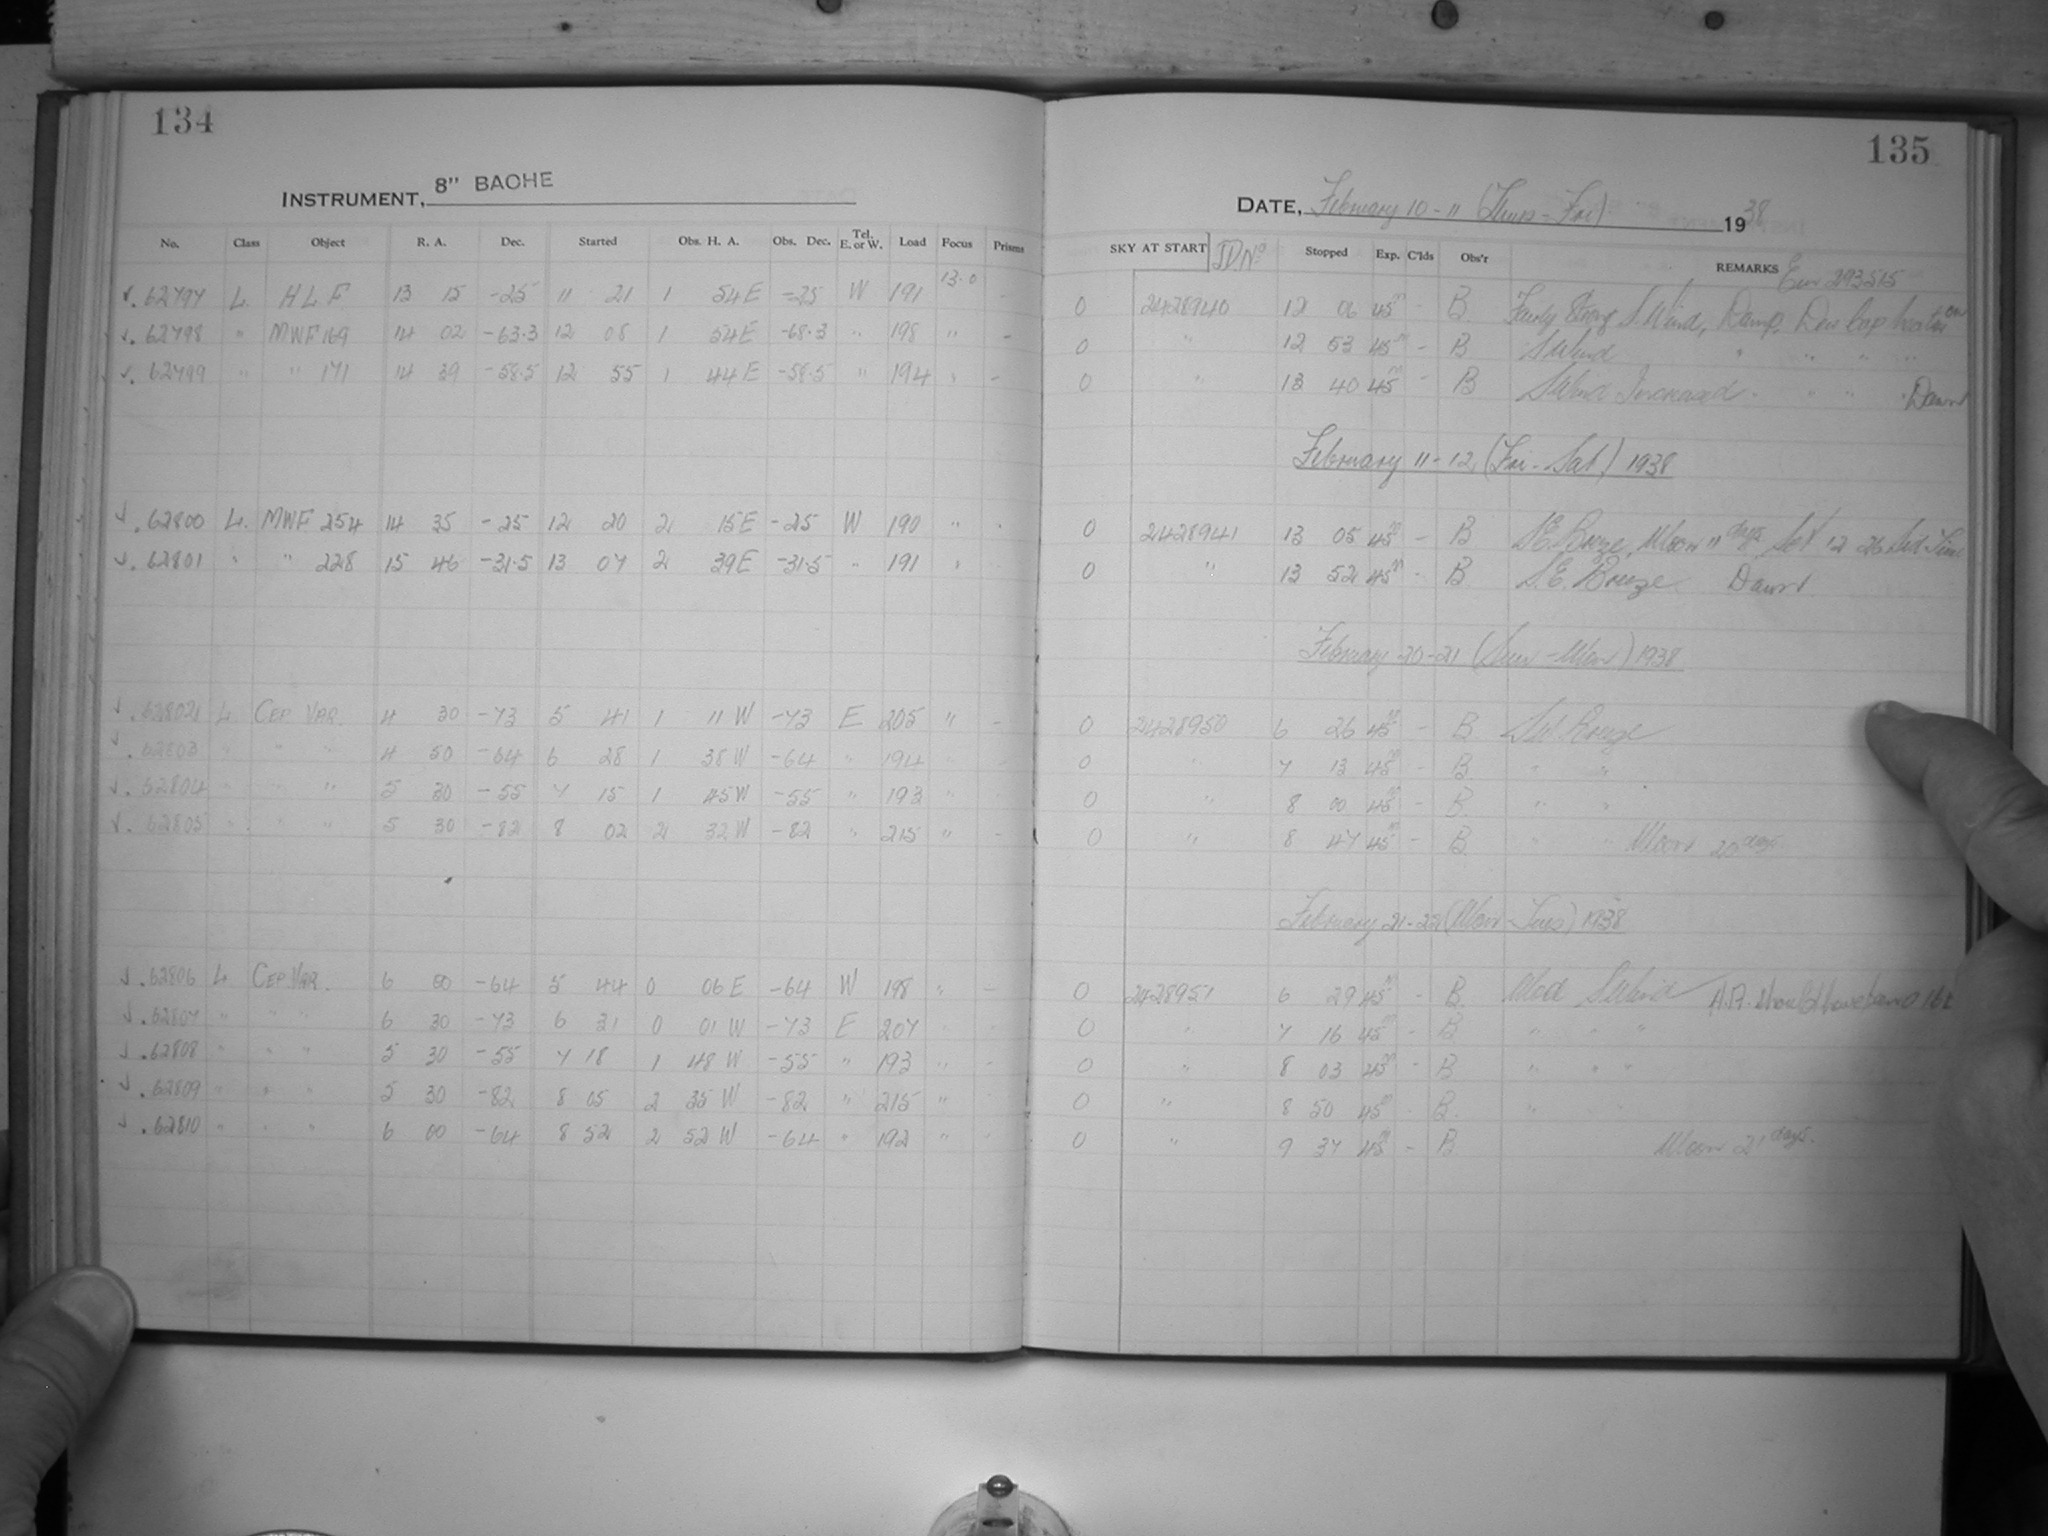 134
INSTRUMENT, 8" BACHE
No. Class Object R. A. Dec. Started Obs. H. A. Obs. Dec. Tel. E. or W. Load Focus Prisms
62797 L. H L F 13 15 -25 11 21 1 54 E -25 W 191 13.0 -
62798 " MWF 169 14 02 -63.3 12 08 1 54 E -68.3 " 198 " -
62799 " " 171 14 39 -58.5 12 55 1 44 E -58.5 " 194 " -
62800 L. MWF 254 14 35 -25 12 20 2 15 E -25 W 190 "
62801 " " 228 15 46 -31.5 13 07 2 39 E -31.5 " 191 "
62802 L CEP VAR. 4 30 -73 5 41 1 11 W -73 E 205 " -
62803 " " " 4 50 -64 6 28 1 38 W -64 " 194 "
62804 " " " 5 30 -55 7 15 1 45 W -55 " 193 "
62805 " " " 5 30 -82 8 02 2 32 W -82 " 215 " -
62806 L CEP. VAR. 6 00 -64 5 44 0 06 E -64 W 198 " -
62807 " " " 6 30 -73 6 31 0 01 W -73 E 207
62808 " " " 5 30 -55 7 18 1 48 W -55 " 193 " -
62809 " " " 5 30 -82 8 05 2 35 W -82 " 215 "
62810 " " " 6 00 -64 8 52 2 52 W -64 " 192 "
135
DATE, February 10-11 (Thurs-Fri) 1938
SKY AT START JD No. Stopped Exp. C'lds Obs'r REMARKS
0 2428940 12 06 45m - B Fairly Strong S. Wind, Damp, Dew Cap heater on
0 " 12 53 45m - B S Wind " " " "
0 " 13 40 45m - B S Wind Increased. " " " Dawn
February 11-12, (Fri-Sat) 1938
0 2428941 13 05 45m - B S.E. Breeze, Moon 11 days, Set 12 26 Sid. Time
0 " 13 52 45m - B S.E. Breeze Dawn
February 20-21 (Sun-Mon) 1938
0 2428950 6 26 45m - B SW Breeze
0 " 7 13 45m - B " "
0 " 8 00 45m - B. " "
0 " 8 47 45m - B. " " Moon 20 days
February 21-22 (Mon-Tues) 1938
0 2428951 6 29 45m - B. Mod S Wind H.A. should have been 0 16 E
0 " 7 16 45m - B " " "
0 " 8 03 45m - B " " "
0 " 8 50 45m B. "
0 " 9 37 45m - B Moon 21 days.